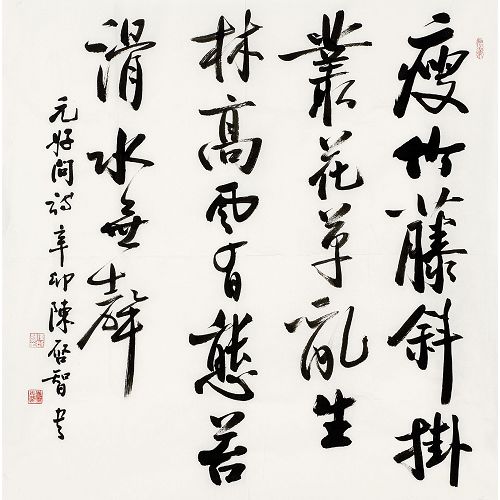 瘦竹藤斜掛
叢花草亂生
林高風有態苔
滑水無聲
元好問詩辛卯陳啓智書